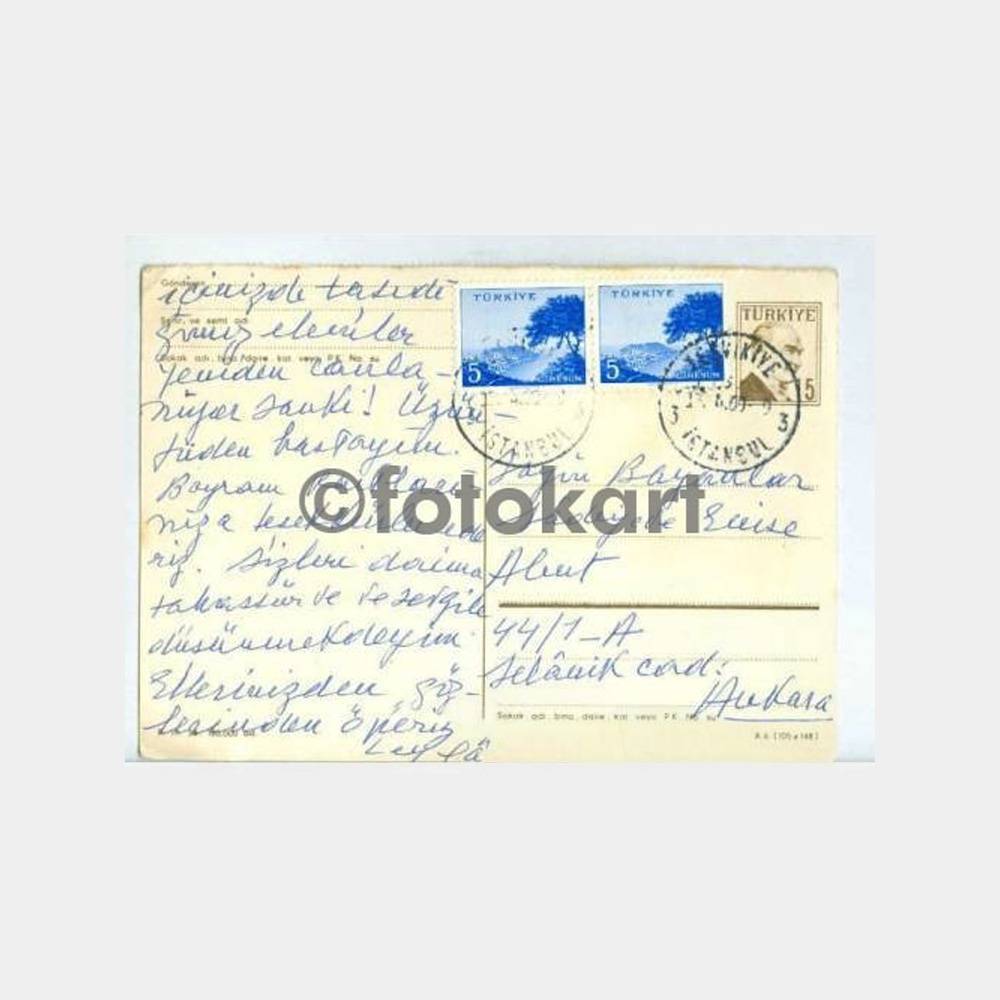 Gönderen
içinizde taşıdı-
Şehir, ve semt adı
ğınız elemler
Sokak adı, bina, daire, kat veya P.K. No. su
yeniden canla-
nıyor sanki! Üzün-
tüden hastayım.
Bayram
nıza teşekkür ede
riz. Sizleri daima
tahassür ve sevgile
düşünmekdeyim.
Ellerinizden göz-
lerinden öperiz
Leylâ
TÜRKİYE
5
GİRESUN
TÜRKİYE
5
GİRESUN
TÜRKİYE
5
İSTANBUL
TEŞVİKİYE
3 İSTANBUL 3
©fotokart
Sayın Bayanlar
Enise
Abut
44/1-A
Selânik cad:
Ankara
Sokak adı, bina, daire, kat veya P.K. No. su
A 6 (105 x 148)